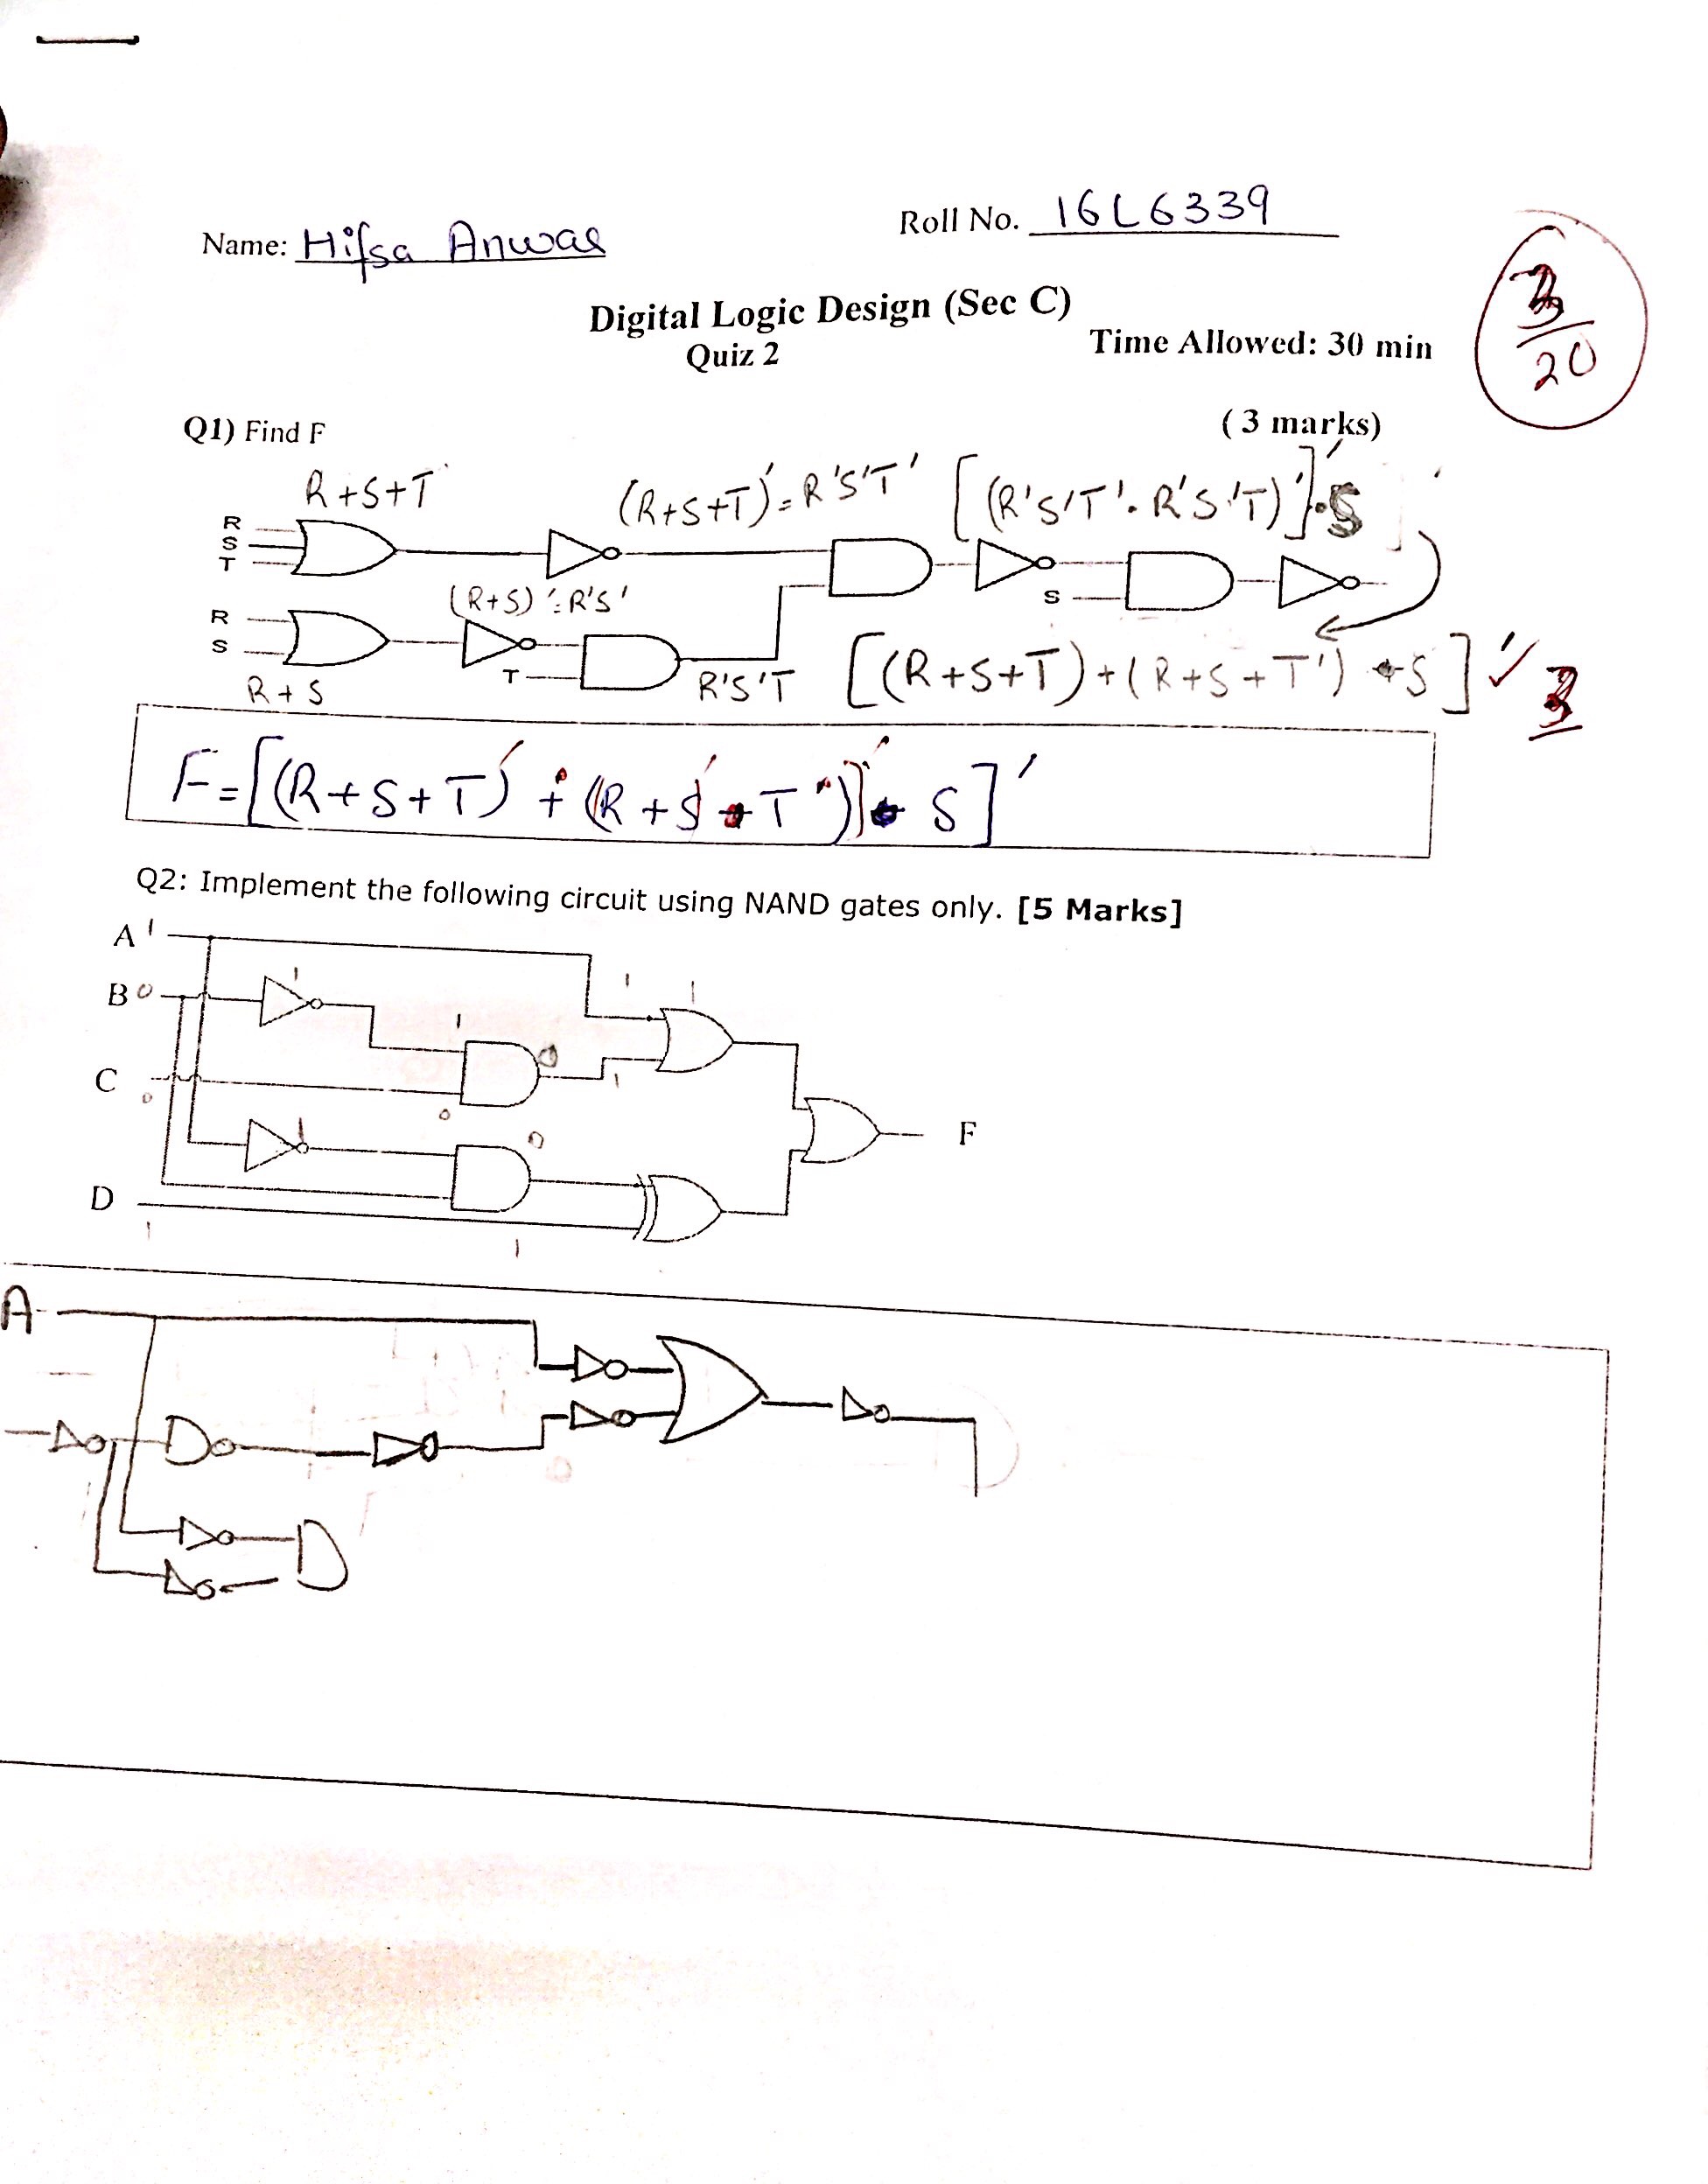 Name: Hifsa Anwar
Roll No. 16L6339
Digital Logic Design (Sec C)
Quiz 2
Time Allowed: 30 min
3/20
Q1) Find F
(3 marks)
R+S+T
(R+S+T)'=R'S'T'
[(R'S'T'.R'S'T)']'.S
R
S
T
(R+S)'=R'S'
S
R
S
T
R+S
R'S'T
[(R+S+T)+(R+S+T').S]'
3
F=[(R+S+T)'.(R+S)'.T)]'.S]'
Q2: Implement the following circuit using NAND gates only. [5 Marks]
A 1
1
1
1
B 0
1
0
C
0
1
0
1
0
F
D
1
1
A